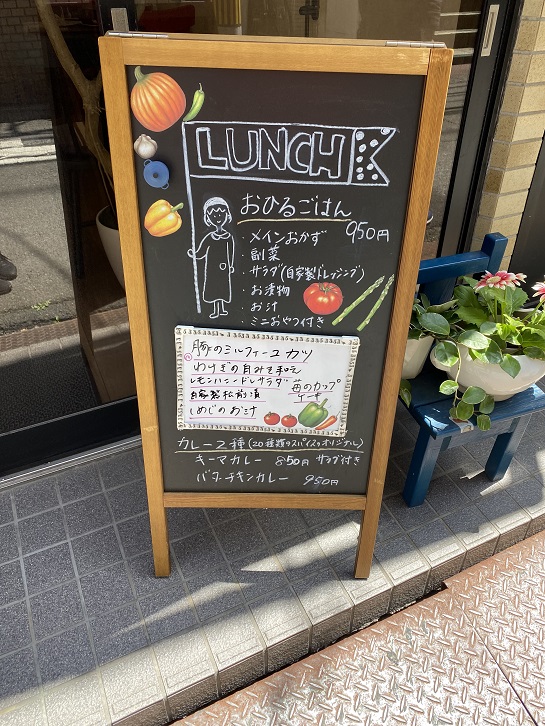 LUNCH
おひるごはん
950円
・メインおかず
・副菜
・サラダ(自家製ドレッシング)
・お漬物
・お汁
・ミニおやつ付き
豚のミルフィーユカツ
わけぎの白みそ和え
レモンハニードレサラダ
自家製松前漬
しめじのお汁
苺のカップ
ケーキ
カレー2種(20種類のスパイスのオリジナル)
キーマカレー 850円 サラダ付き
バターチキンカレー 950円